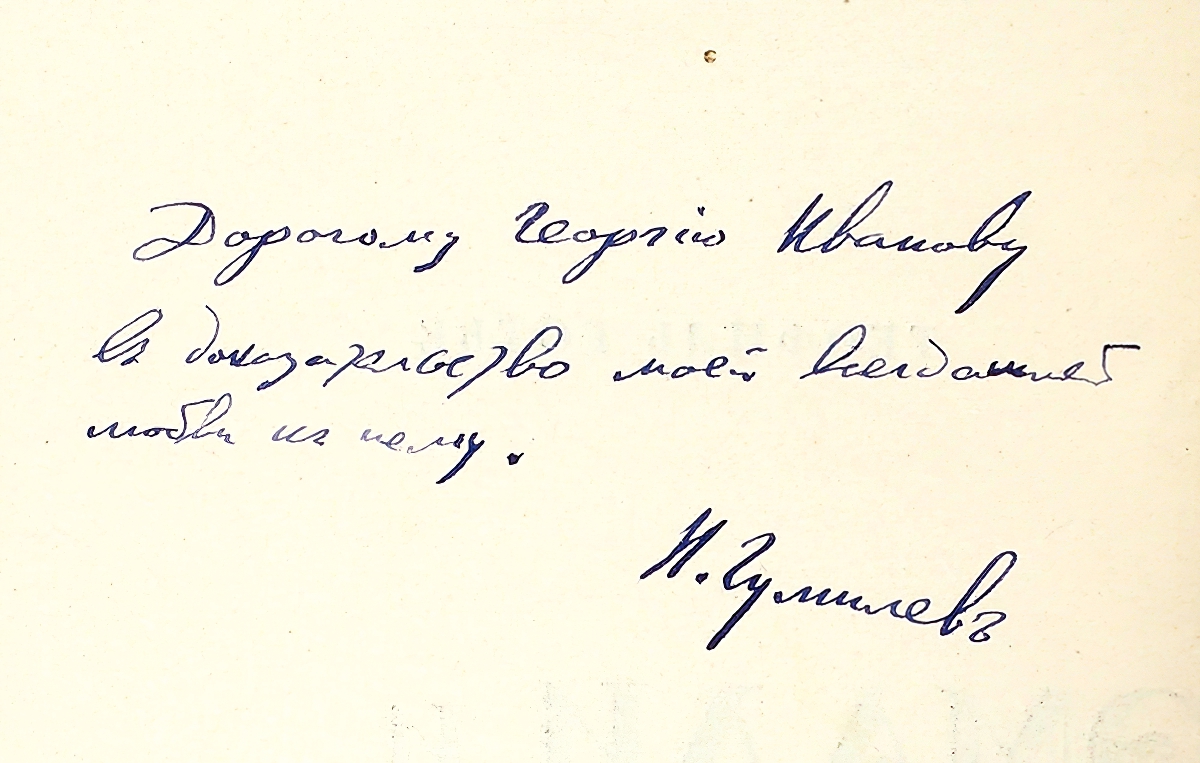 Дорогому Георгію Иванову
въ доказательство моей всегдашней
любви къ нему.
Н. Гумилевъ